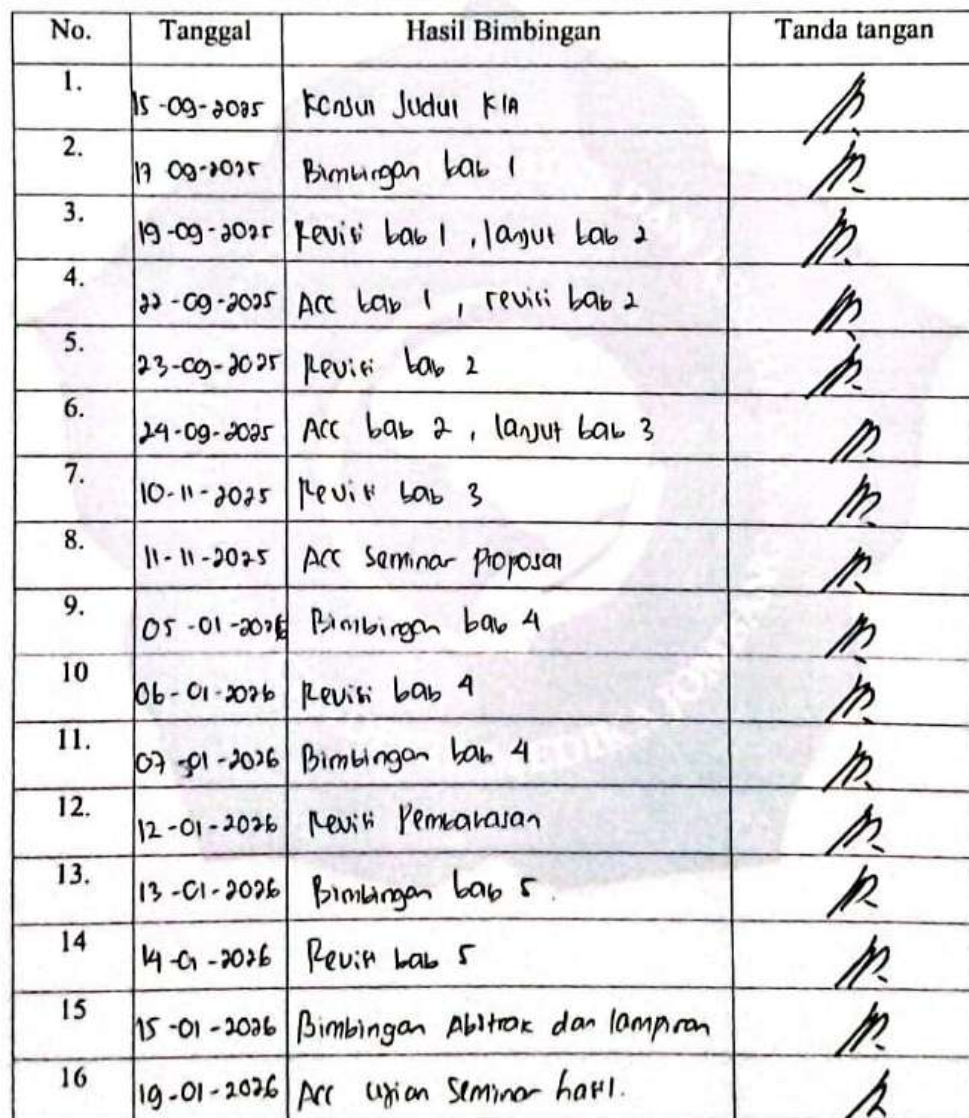 No. Tanggal Hasil Bimbingan Tanda tangan
1. 15-09-2025 Konsul Judul KIA
2. 17 09-2025 Bimbingan bab 1
3. 19-09-2025 Revisi bab 1, lanjut bab 2
4. 22-09-2025 Acc bab 1, revisi bab 2
5. 23-09-2025 Revisi bab 2
6. 24-09-2025 Acc bab 2, lanjut bab 3
7. 10-11-2025 Revisi bab 3
8. 11-11-2025 Acc Seminar Proposal
9. 05-01-2026 Bimbingan bab 4
10 06-01-2026 Revisi bab 4
11. 07-01-2026 Bimbingan bab 4
12. 12-01-2026 Revisi Pembahasan
13. 13-01-2026 Bimbingan bab 5.
14 14-01-2026 Revisi bab 5
15 15-01-2026 Bimbingan Abstrak dan lampiran
16 19-01-2026 Acc Ujian Seminar hasil.